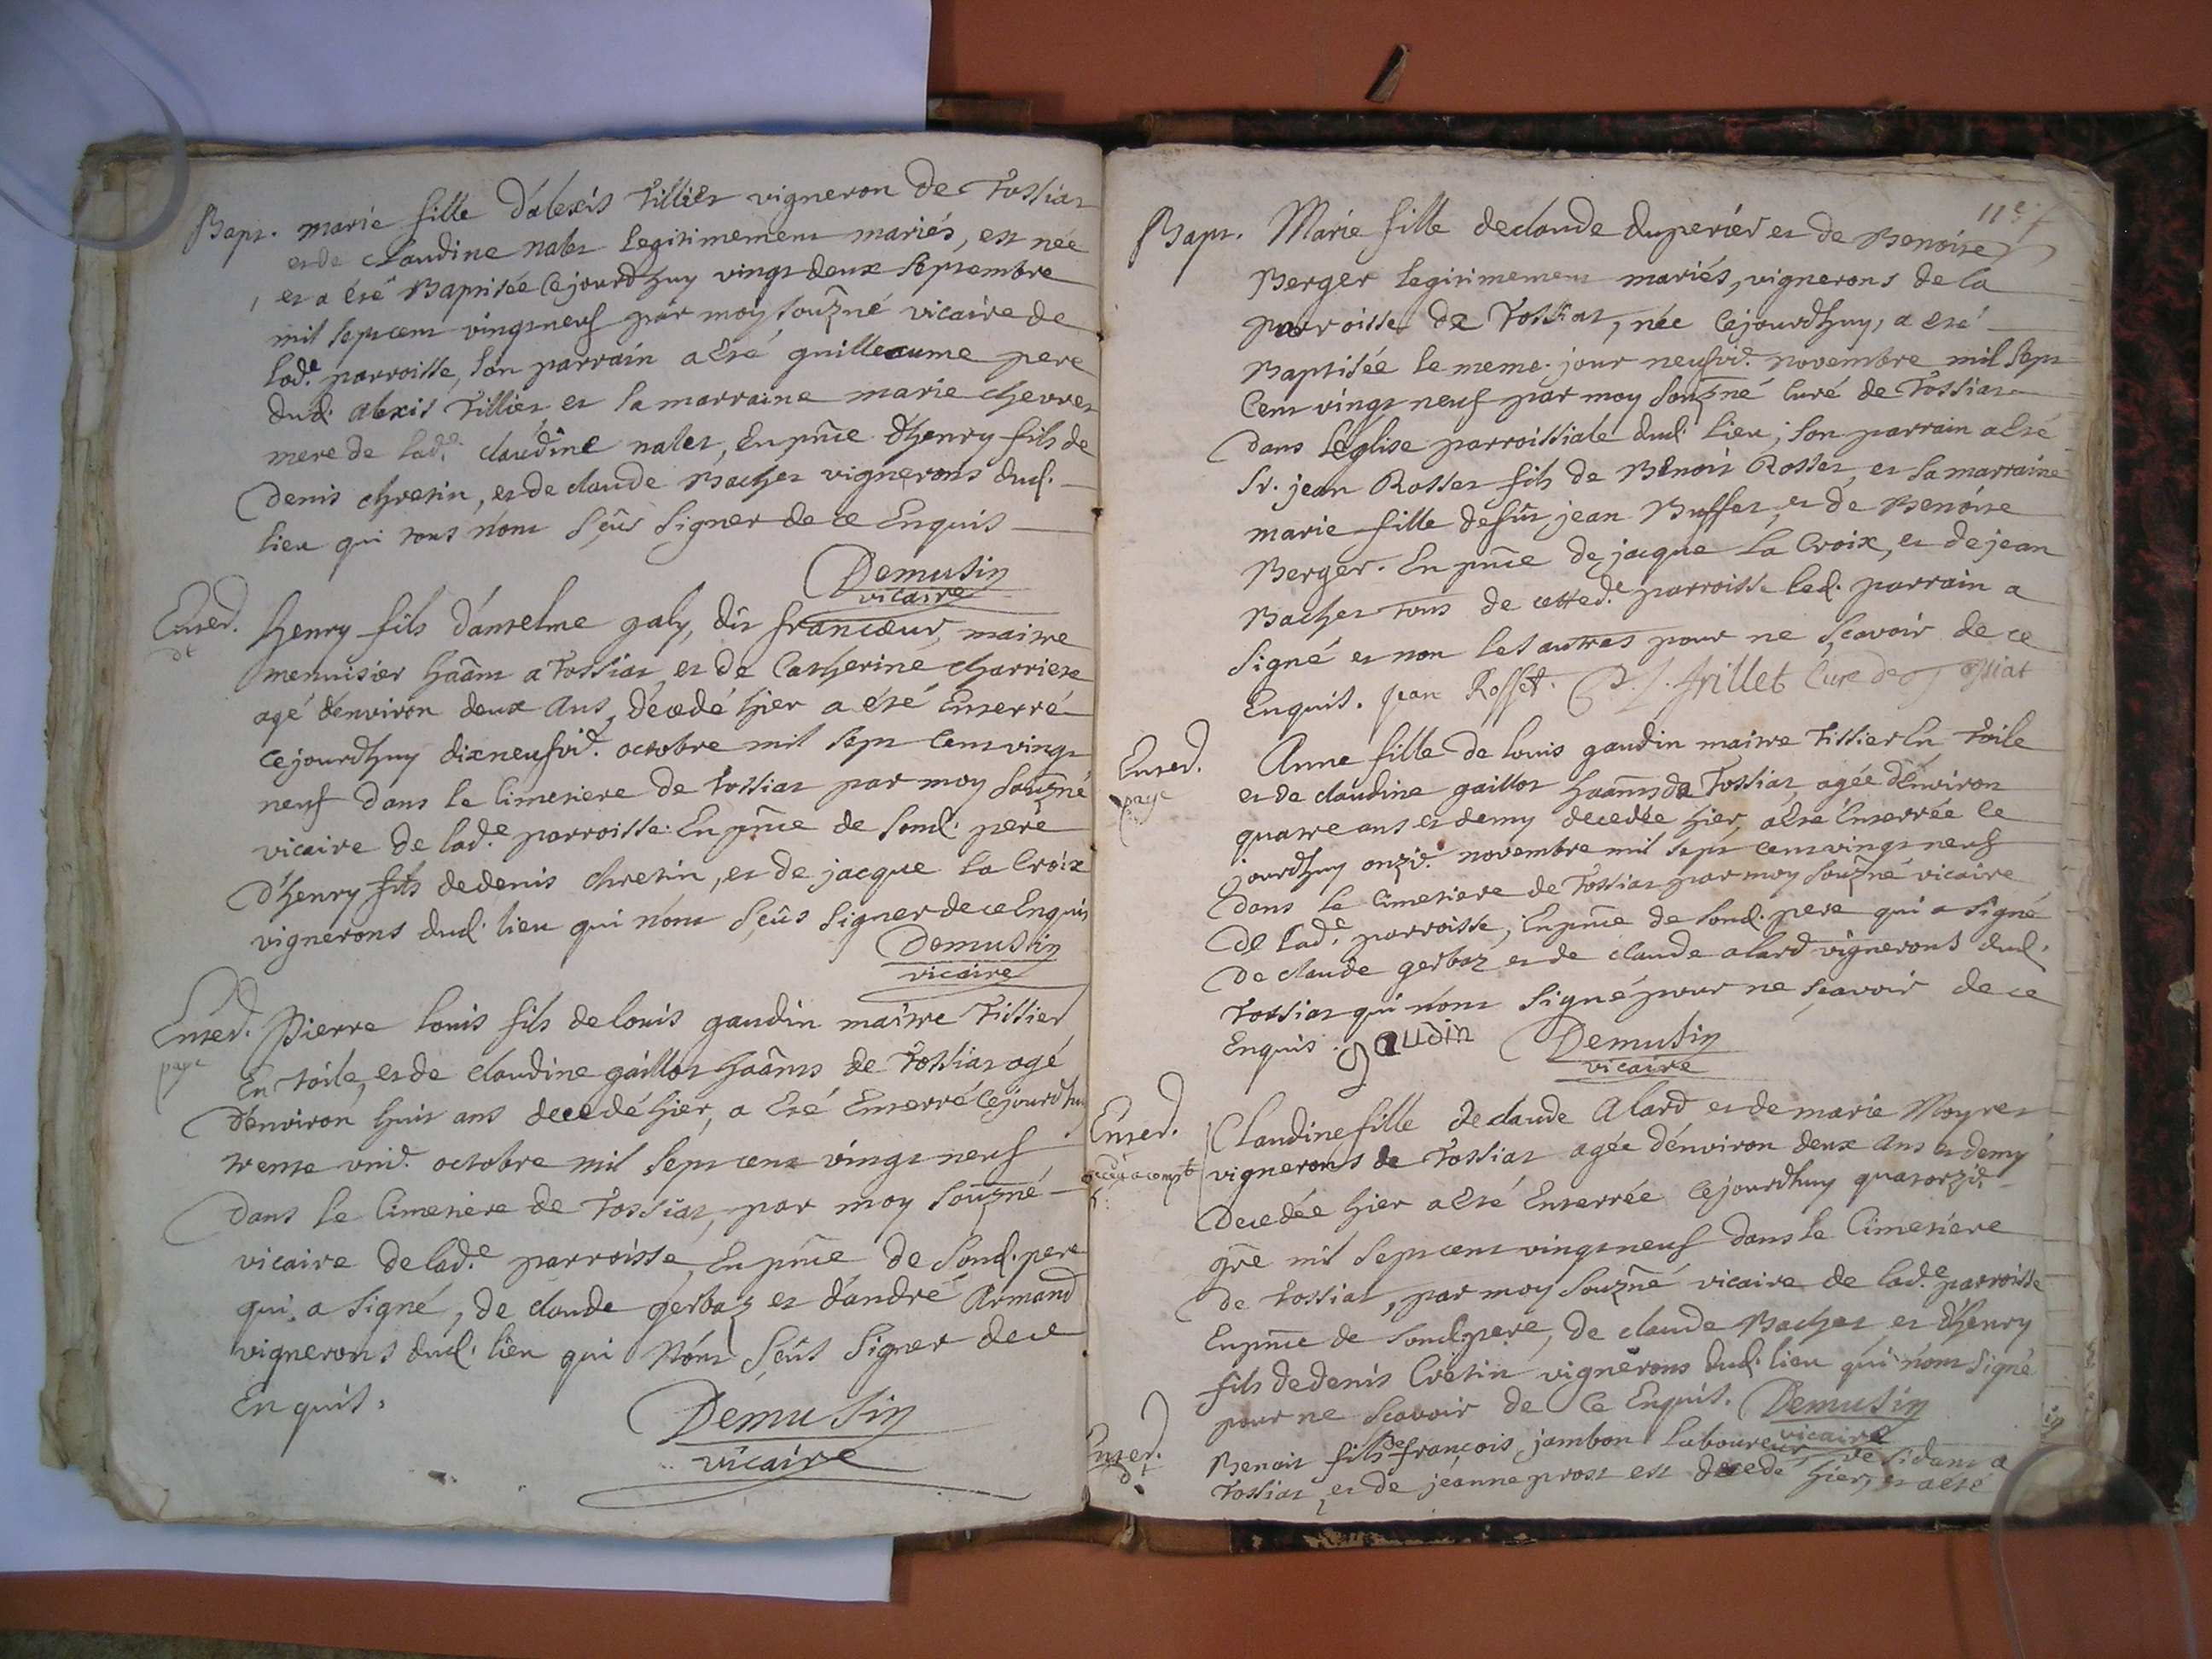 Bapt. marie fille d'alexis Tillier vigneron de Tossiat
et de claudine nalet legitimement mariés, est née
, et a été Baptisée cejourd'huy vingt deux septembre
mil sept cent vingt neuf par moy souzné vicaire de
lad.e parroisse, son parrain a été guilleaume pere
dud. alexis Tillier et la marraine marie chevret
mere de lad.e claudine nalet, En pnce d'henry fils de
Denis chretin, et de claude Bachet vignerons dud.
lieu qui tous n'ont sçûs signer de ce Enquis
Demusin
vicaire
Enter. henry fils d'antelme galy, dit francœur, maitre
dt
menuisier haânt a Tossiat et de Catherine charriere
agé d'environ deux ans, décedé hier a été Enterré
cejourd'huy dixneufvie. octobre mil sept cent vingt
neuf dans le Cimetiere de Tossiat par moy souzné
vicaire de lad.e parroisse. En pnce de sond. pere
d'henry fils de denis chretin, et de jacque la Croix
vignerons dud. lieu qui n'ont sçûs signer de ce Enquis
Demusin
vicaire
Enter. Pierre louis fils de louis gaudin maitre Tissier
paye
En toile, et de claudine gaillot haânts de Tossiat agé
d'environ huit ans decedé hier, a été Enterré Cejourd'hu
trente unie. octobre mil sept cent vingt neuf
dans le Cimetiere de Tossiat, par moy souzné
vicaire de lad.e parroisse, En pnce de sond. pere
qui a signé, de claude gerbaz et d'andré Armand
vignerons dud. lieu qui n'ont sçûs signer de ce
Enquis.
Demusin
vicaire
11e
Bapt. Marie fille de claude duperier et de Benoite
Berger legitimement mariés, vignerons de la
parroisse de Tossiat, née cejourd'huy, a été
Baptisée le meme jour neufvie. novembre mil sept
Cent vingt neuf par moy souzné Curé de Tossiat
dans L'église parroissiale dud. lieu; son parrain a été
Sr. jean Rosset fils de Bênoit Rosset, et sa marraine
marie fille defût jean Buffet, et de Benoite
Berger. En pnce de jacque la Croix, et de jean
Bachet tous de cetted.e parroisse led. parrain a
signé et non les autres pour ne sçavoir de ce
Enquis. Jean Rosset. frillet Curé de Tossiat
Enter. Anne fille de louis gaudin maitre Tissier En toile
paye
et de claudine gaillot haânts de Tossiat, agée d'Environ
quatre ans et demy decedée hier, a été Enterrée ce
jourd'huy onzie. novembre mil sept cent vingt neuf
dans le Cimetiere de Tossiat par moy souzné vicaire
de lad.e parroisse, En pnce de sond. pere qui a signé
de claude gerbaz et de claude alard vignerons dud.
Tossiat qui n'ont signé pour ne sçavoir de ce
Enquis. gaudin Demusin
vicaire
Enter. Claudine fille de claude Alard et de marie Moyret
vignerons de Tossiat agée d'environ deux ans et demy
decedée hier a été Enterrée Cejourd'huy quatorzie.
gre mil sept cent vingt neuf dans le Cimetiere
de Tossiat, par moy souzné vicaire de lad.e parroisse
En pnce de sond. pere, de claude Bachet et d'henry
fils de denis Cretin vignerons dud. lieu qui n'ont signé
pour ne sçavoir de Ce Enquis. Demusin
vicaire
Enter. Benoit fils de françois jambon laboureur residant a
dt
Tossiat, et de jeanne prost est decedé hier, et a été